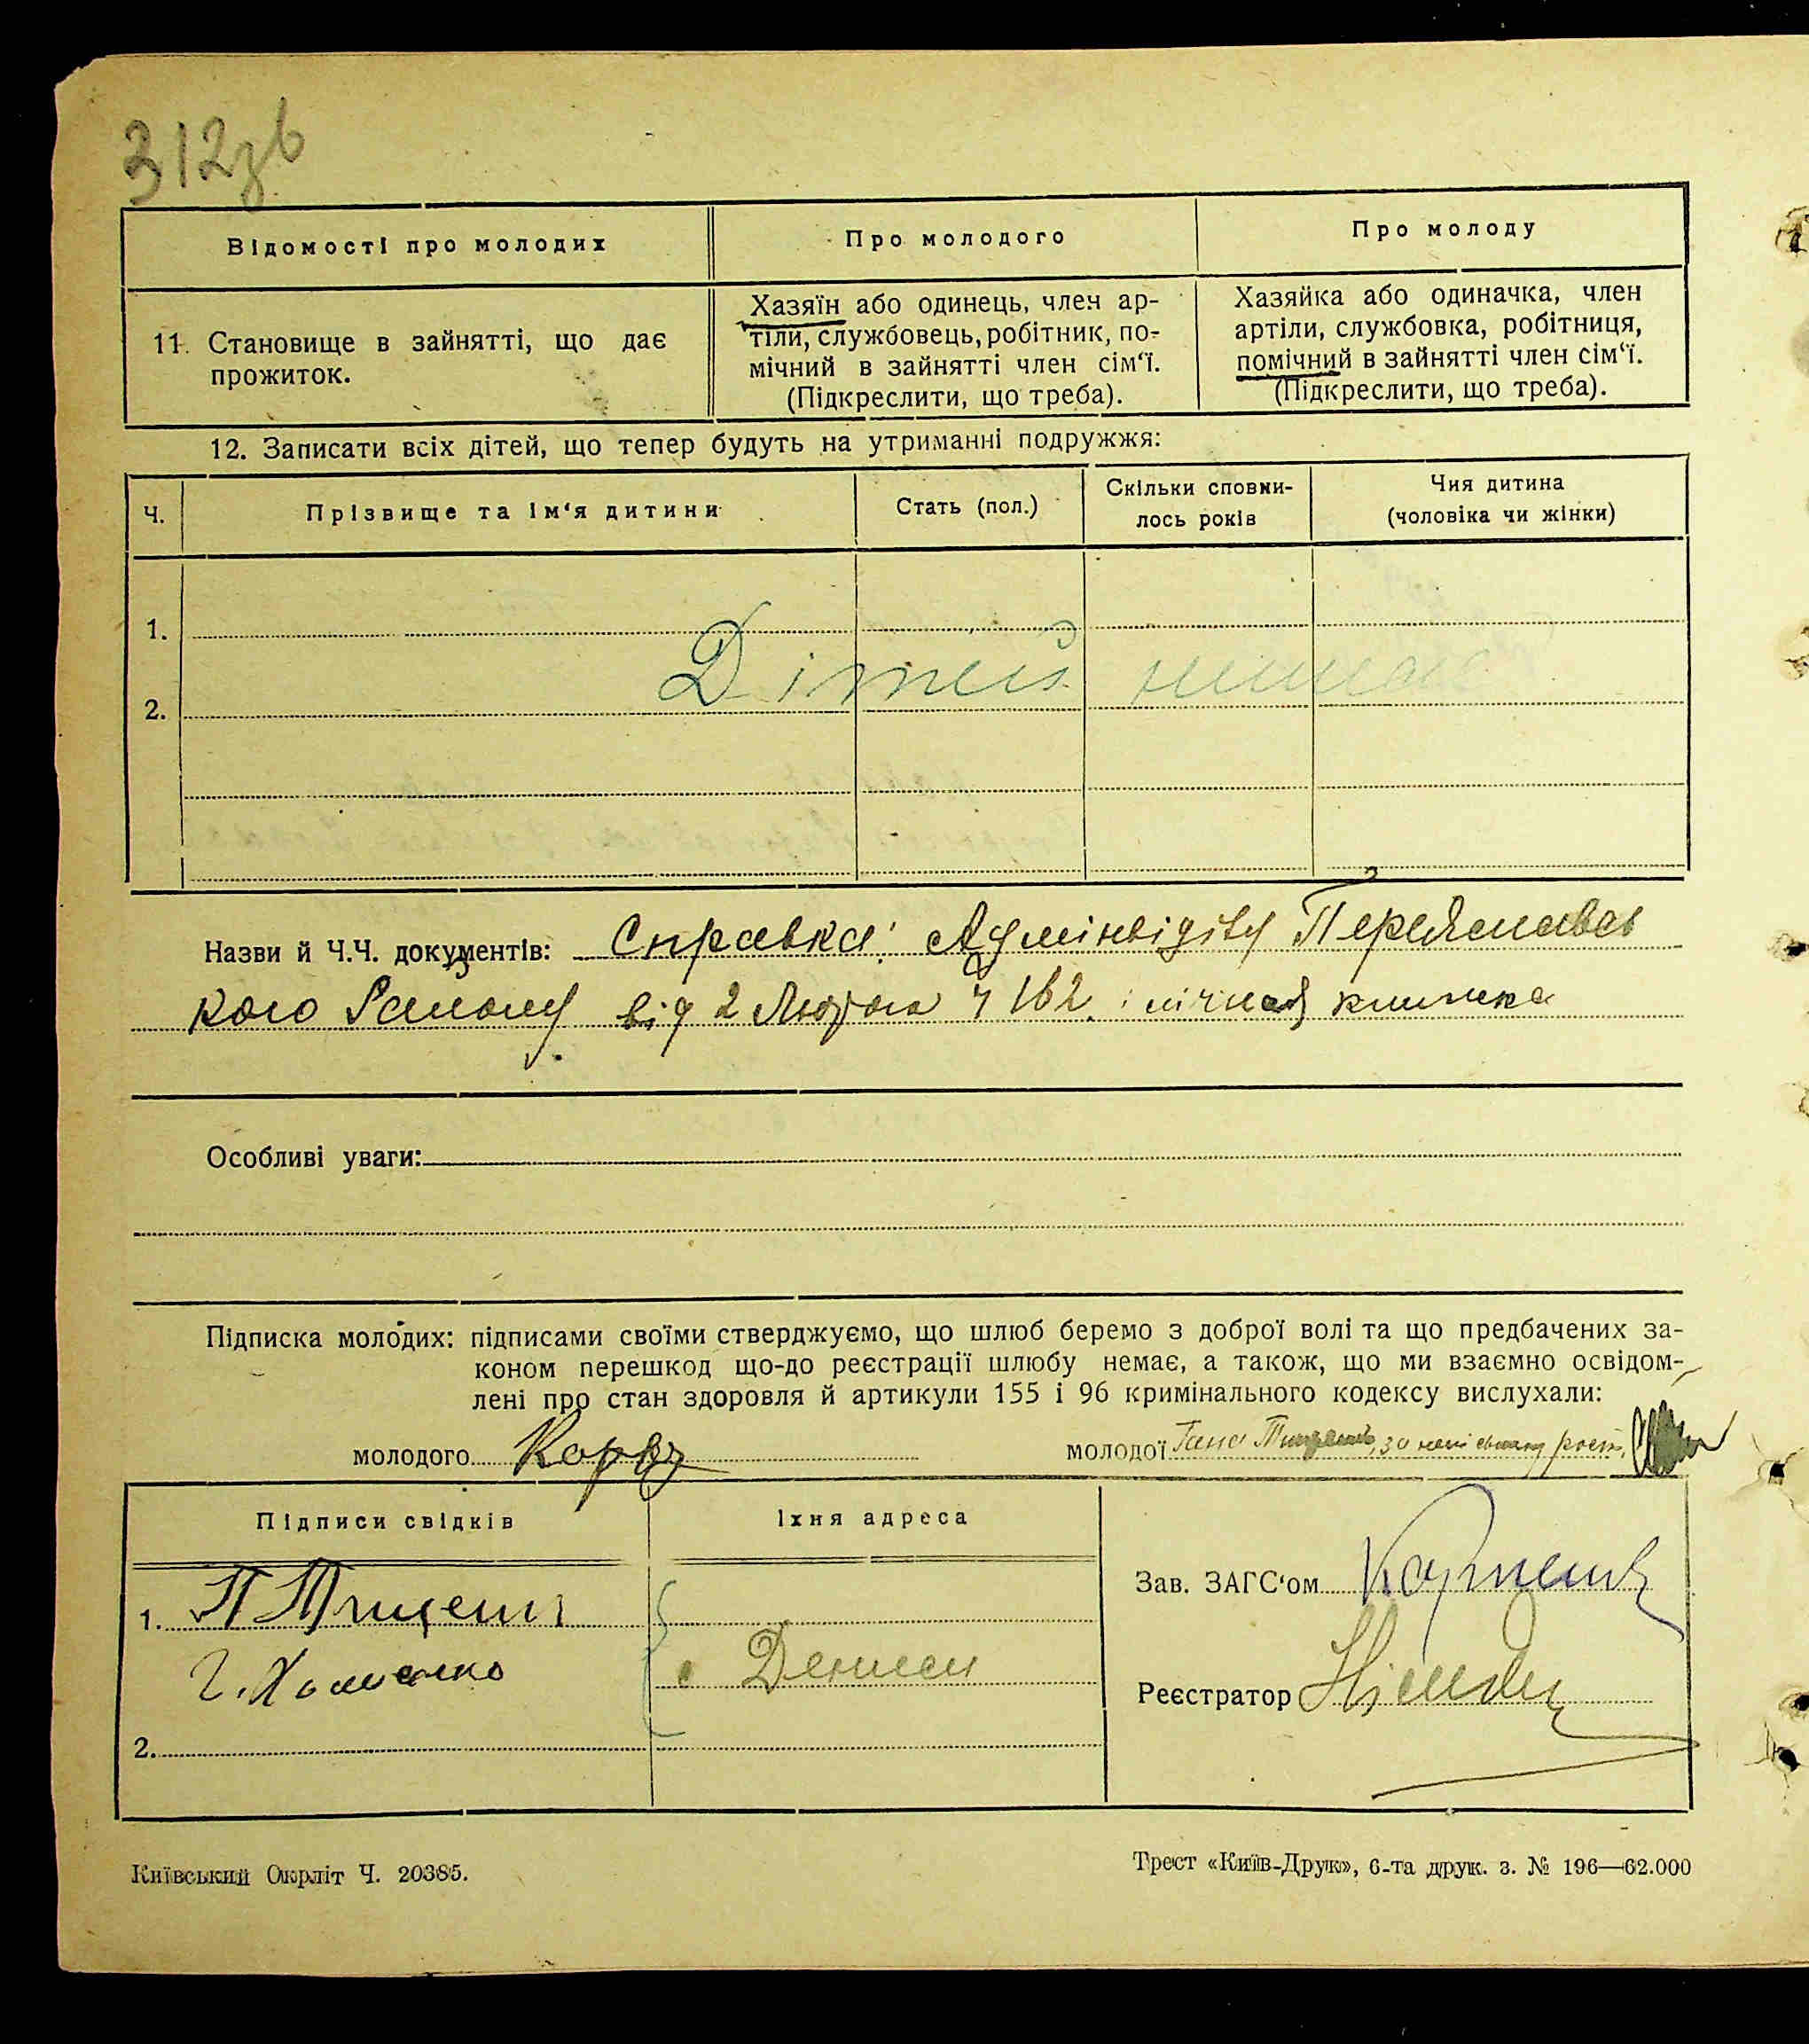 312зв
Відомості про молодих
Про молодого
Про молоду
11. Становище в зайнятті, що дає
прожиток.
Хазяїн або одинець, член ар-
тіли, службовець, робітник, по-
мічний в зайнятті член сім‘ї.
(Підкреслити, що треба).
Хазяйка або одиначка, член
артіли, службовка, робітниця,
помічний в зайнятті член сім‘ї.
(Підкреслити, що треба).
12. Записати всіх дітей, що тепер будуть на утриманні подружжя:
Ч.
Прізвище та ім‘я дитини
Стать (пол.)
Скільки сповни-
лось років
Чия дитина
(чоловіка чи жінки)
1.
Дітей немає
2.
Назви й Ч.Ч. документів: Справка: Адмінвідділу Переяславсь
кого Району від 2 Лютого Ч 162. і лічная книжка
Особливі уваги:
Підписка молодих: підписами своїми стверджуємо, що шлюб беремо з доброї волі та що предбачених за-
коном перешкод що-до реєстрації шлюбу немає, а також, що ми взаємно освідом-
лені про стан здоровля й артикули 155 і 96 кримінального кодексу вислухали:
молодого
молодої
Підписи свідків
Їхня адреса
1. П Тищен
Г. Хоменко
с Дениси
2.
Зав. ЗАГС‘ом
Реєстратор
Київський Окрліт Ч. 20385.
Трест «Київ-Друк», 6-та друк. з. № 196—62.000